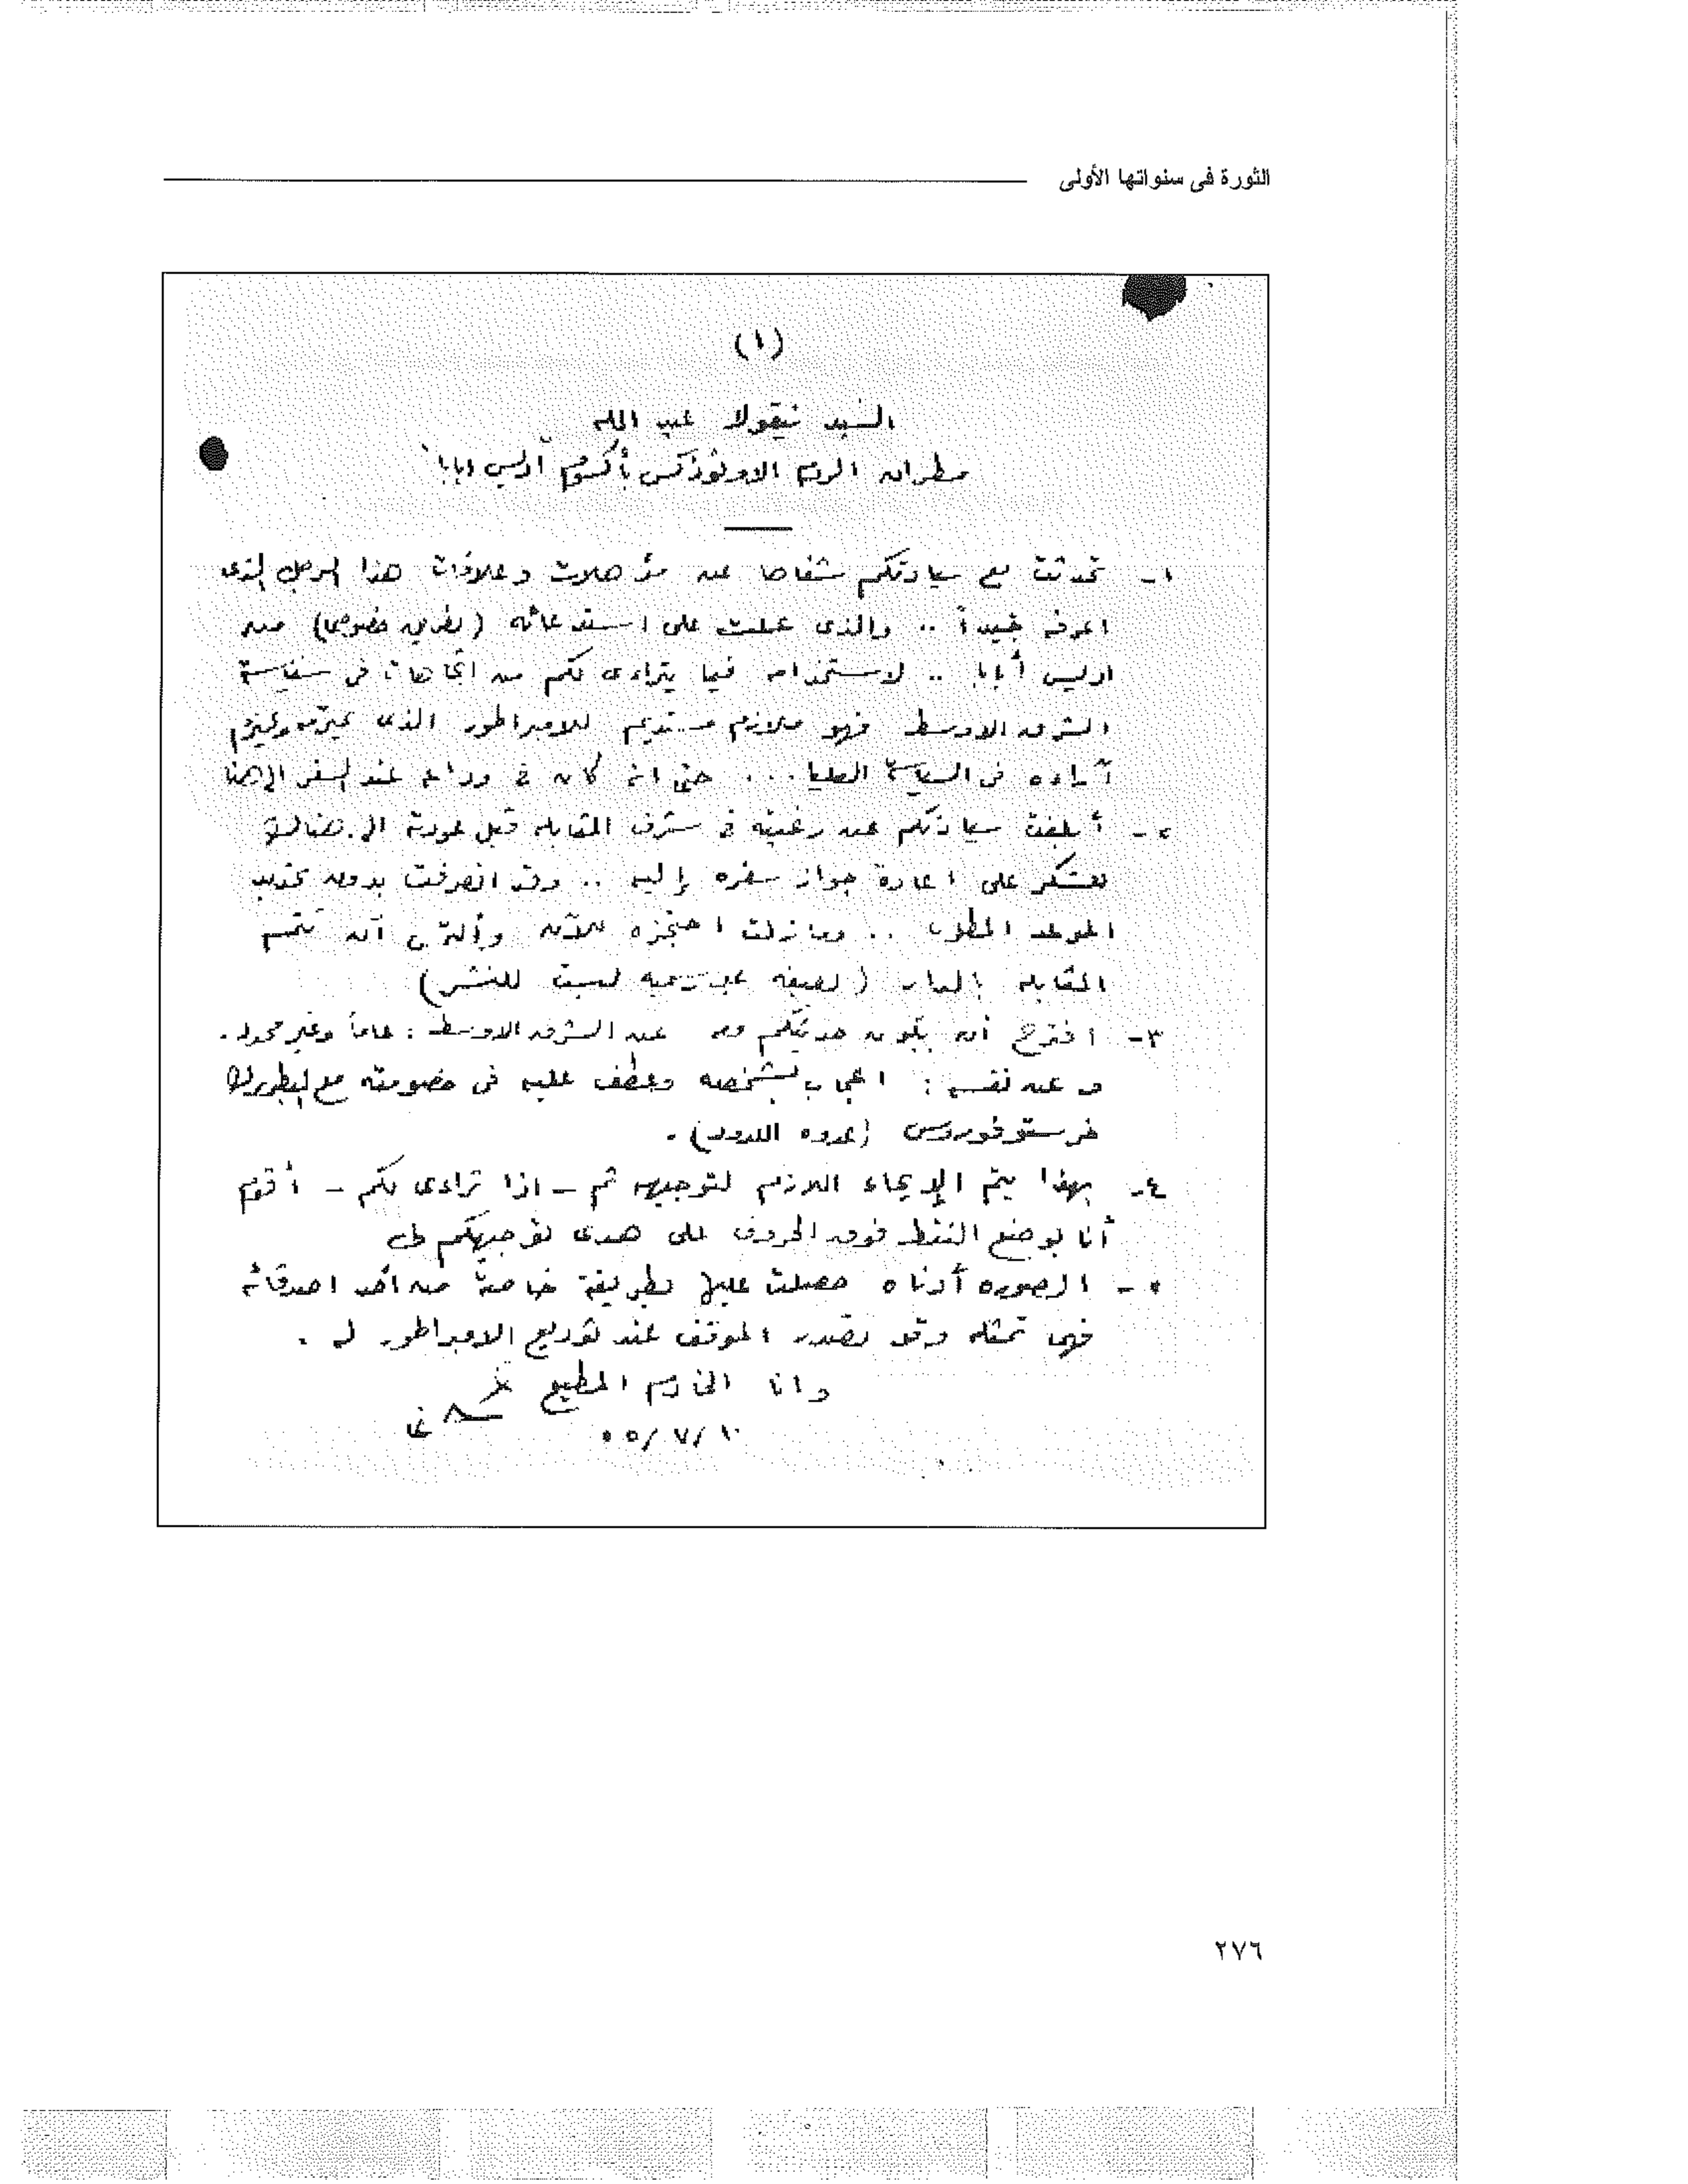 الثورة فى سنواتها الأولى
(١)
السيد نيقولا عبد الله
مطران الروم الاورثوذكس بأكسوم أديس ابابا
١- تحدثت مع سيادتكم شفاها عن مؤهلات وعلاقات هذا الرجل الذى
اعرفه جيداً .. والذى عملت على استدعائه (بطريق خصوصى) من
اديس أبابا .. لاستمزاجه فيما يتراءى لكم من اتجاهات فى سياسة
الشرق الاوسط فهو ملازم مستديم للامبراطور الذى
آراءه فى السياسة العليا ... حتى انه كان فى وداعه عند السفر الى هنا
٢- أبلغت سيادتكم عن رغبته فى شرف المقابلة قبل عودته الى هناك
للشكر على اعادة جواز سفره إليه .. وقد انصرفت بدون تحديد
الموعد المطلوب .. ومازلت احتجزه للآن وألتمس أن تتم
المقابله بالدار (بصيغه غير رسميه ليست للنشر)
٣- اقترح أن يكون حديثكم معه عن الشرق الاوسط : عاماً وغير محدد.
و عن نفسه : اعجاب بشخصه وعطف عليه فى خصومته مع البطريرك
خرستوفوروس (عدوه اللدود).
٤- بهذا يتم الإيحاء اللازم لتوجيهه ثم - اذا تراءى لكم - أقوم
أنا بوضع النقط فوق الحروف على هدى توجيهكم لى
٥- الصوره أدناه حصلت عليها بطريقة خاصة من أحد اصدقائه
فهى تمثله وقد تصدر الموقف عند توديع الامبراطور له .
وانا الخادم المطيع
١٠/٧/٥٥
٢٧٦